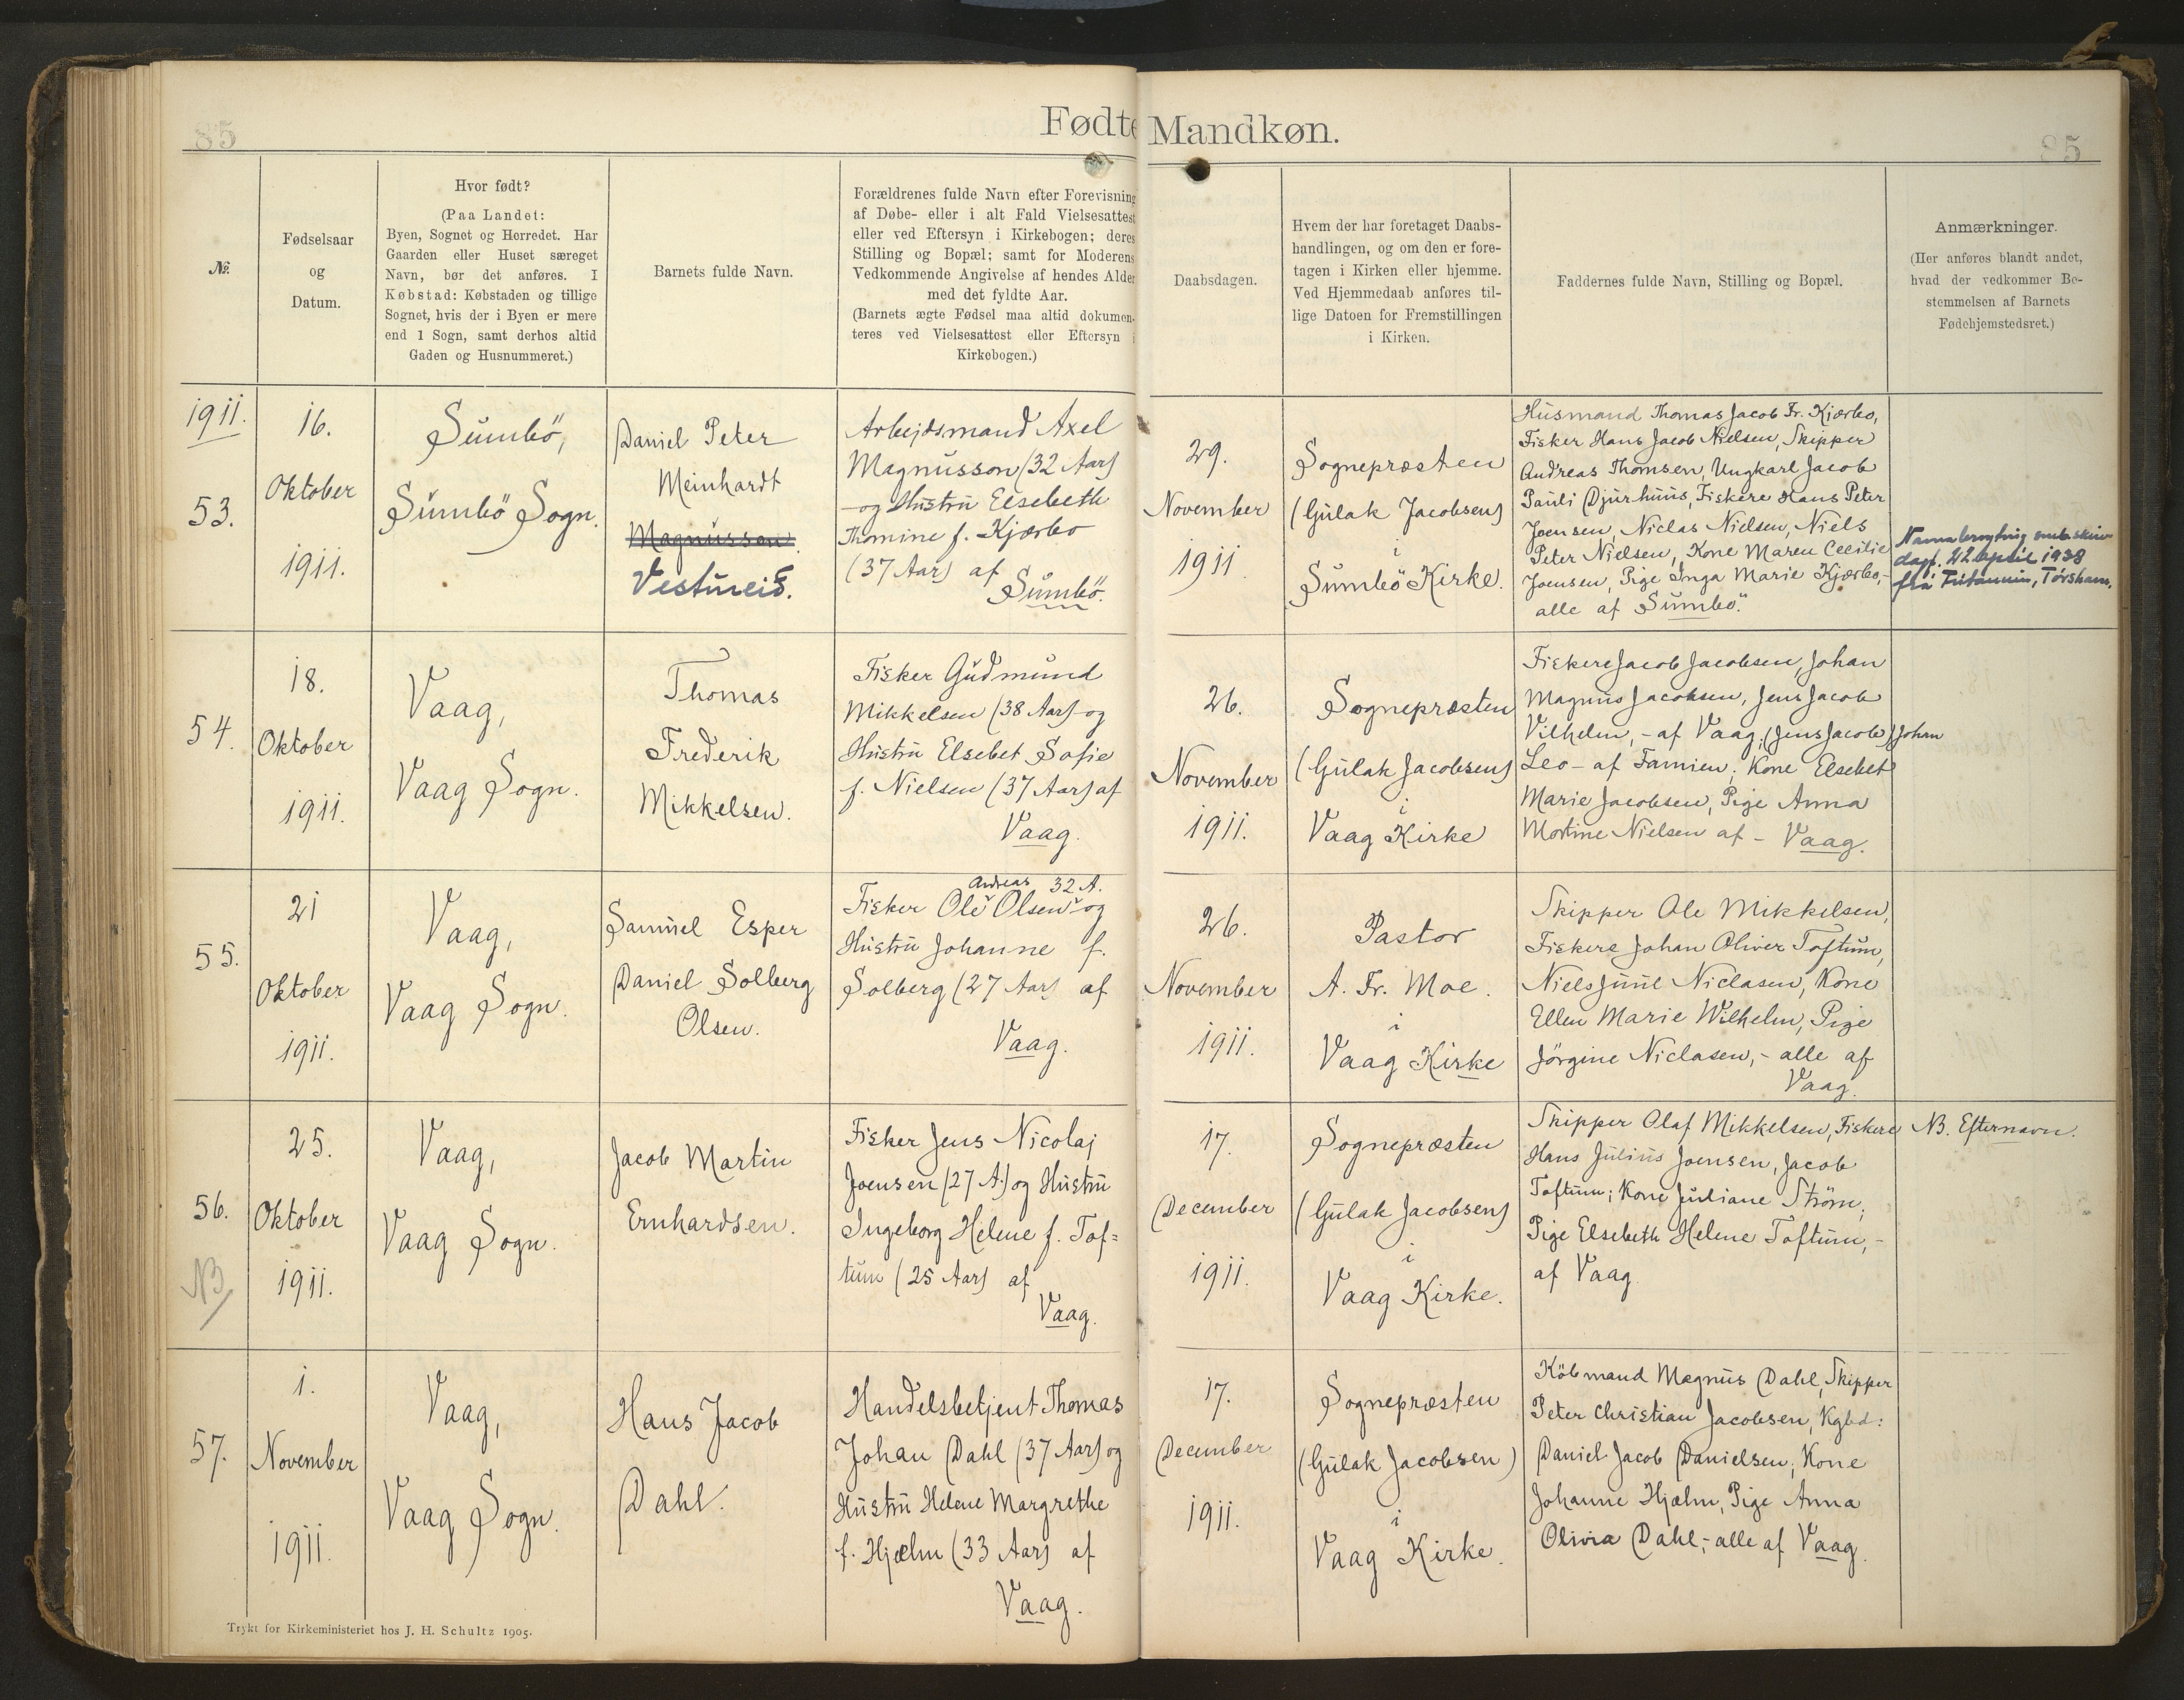 85
Fødte Mandkøn.
85
№.
Fødselsaar
og
Datum.
Hvor født?
(Paa Landet:
Byen, Sognet og Herredet. Har
Gaarden eller Huset særeget
Navn, bør det anføres. I
Købstad: Købstaden og tillige
Sognet, hvis der i Byen er mere
end 1 Sogn, samt derhos altid
Gaden og Husnummeret.)
Barnets fulde Navn.
Forældrenes fulde Navn efter Forevisning
af Døbe- eller i alt Fald Vielsesattest
eller ved Eftersyn i Kirkebogen; deres
Stilling og Bopæl; samt for Moderens
Vedkommende Angivelse af hendes Alder
med det fyldte Aar.
(Barnets ægte Fødsel maa altid dokumen-
teres ved Vielsesattest eller Eftersyn i
Kirkebogen.)
Daabsdagen.
Hvem der har foretaget Daabs-
handlingen, og om den er fore-
tagen i Kirken eller hjemme.
Ved Hjemmedaab anføres til-
lige Datoen for Fremstillingen
i Kirken.
Faddernes fulde Navn, Stilling og Bopæl.
Anmærkninger.
(Her anføres blandt andet,
hvad der vedkommer Be-
stemmelsen af Barnets
Fødehjemstedsret.)
1911.
53.
16.
Oktober
1911.
Sumbö,
Sumbö Sogn.
Daniel Peter
Meinhardt
Magnusson.
Vestureið.
Arbejdsmand Axel
Magnusson (32 Aar)
og Hustru Elsebeth
Thomine f. Kjærbo
(37 Aar) af
Sumbö.
29.
November
1911
Sognepræsten
(Gulak Jacobsen)
i
Sumbö Kirke.
Husmand Thomas Jacob Fr. Kjærbo,
Fisker Hans Jacob Nielsen, Skipper
Andreas Thomsen, Ungkarl Jacob
Pauli Djurhuus, Fiskere Hans Peter
Joensen, Niclas Nielsen, Niels
Peter Nielsen, Kone Maren Cecilie
Joensen, Pige Inga Marie Kjærbo,-
alle af Sumbö.
dagf. 22 apríl 1938
54.
18.
Oktober
1911.
Vaag,
Vaag Sogn.
Thomas
Frederik
Mikkelsen.
Fisker Gudmund
Mikkelsen (38 Aar) og
Hustru Elsebet Sofie
f. Nielsen (37 Aar) af
Vaag.
26.
November
1911.
Sognepræsten
(Gulak Jacobsen)
i
Vaag Kirke
Fiskere Jacob Jacobsen, Johan
Magnus Jacobsen, Jens Jacob
Vilhelm, - af Vaag; (Jens Jacob) Johan
Leo - af Famien; Kone Elsebet
Marie Jacobsen, Pige Anna
Mortine Nielsen af - Vaag.
55.
21
Oktober
1911.
Vaag,
Vaag Sogn.
Samuel Esper
Daniel Solberg
Olsen.
Andreas 32 A.
Fisker Ole Olsen og
Hustru Johanne f.
Solberg (27 Aar) af
Vaag.
26.
November
1911.
Pastor
A. Fr. Moe.
i
Vaag Kirke
Skipper Ole Mikkelsen,
Fiskere Johan Oliver Toftum,
Niels Juul Niclasen, Kone
Ellen Marie Wilhelm, Pige
Jörgine Niclasen, - alle af
Vaag.
56.
NB
25.
Oktober
1911.
Vaag,
Vaag Sogn.
Jacob Martin
Ernhardsen.
Fisker Jens Nicolaj
Joensen (27 A.) og Hustru
Ingeborg Helene f. Tof=
tum (25 Aar) af
Vaag.
17.
December
1911.
Sognepræsten
(Gulak Jacobsen)
i
Vaag Kirke.
Skipper Olaf Mikkelsen, Fiskere
Hans Julius Joensen, Jacob
Toftum; Kone Juliane Ström;
Pige Elsebeth Helene Toftum, -
af Vaag.
NB. Efternavn.
57.
1.
November
1911.
Vaag,
Vaag Sogn.
Hans Jacob
Dahl.
Handelsbetjent Thomas
Johan Dahl (37 Aar) og
Hustru Helene Margrethe
f. Hjælm (33 Aar) af
Vaag.
17.
December
1911.
Sognepræsten
(Gulak Jacobsen)
i
Vaag Kirke.
Köbmand Magnus Dahl, Skipper
Peter Christian Jacobsen, Kgbd:
Daniel Jacob Danielsen; Kone
Johanne Hjælm, Pige Anna
Olivia Dahl;- alle af Vaag.
Trykt for Kirkeministeriet hos J. H. Schultz 1905.